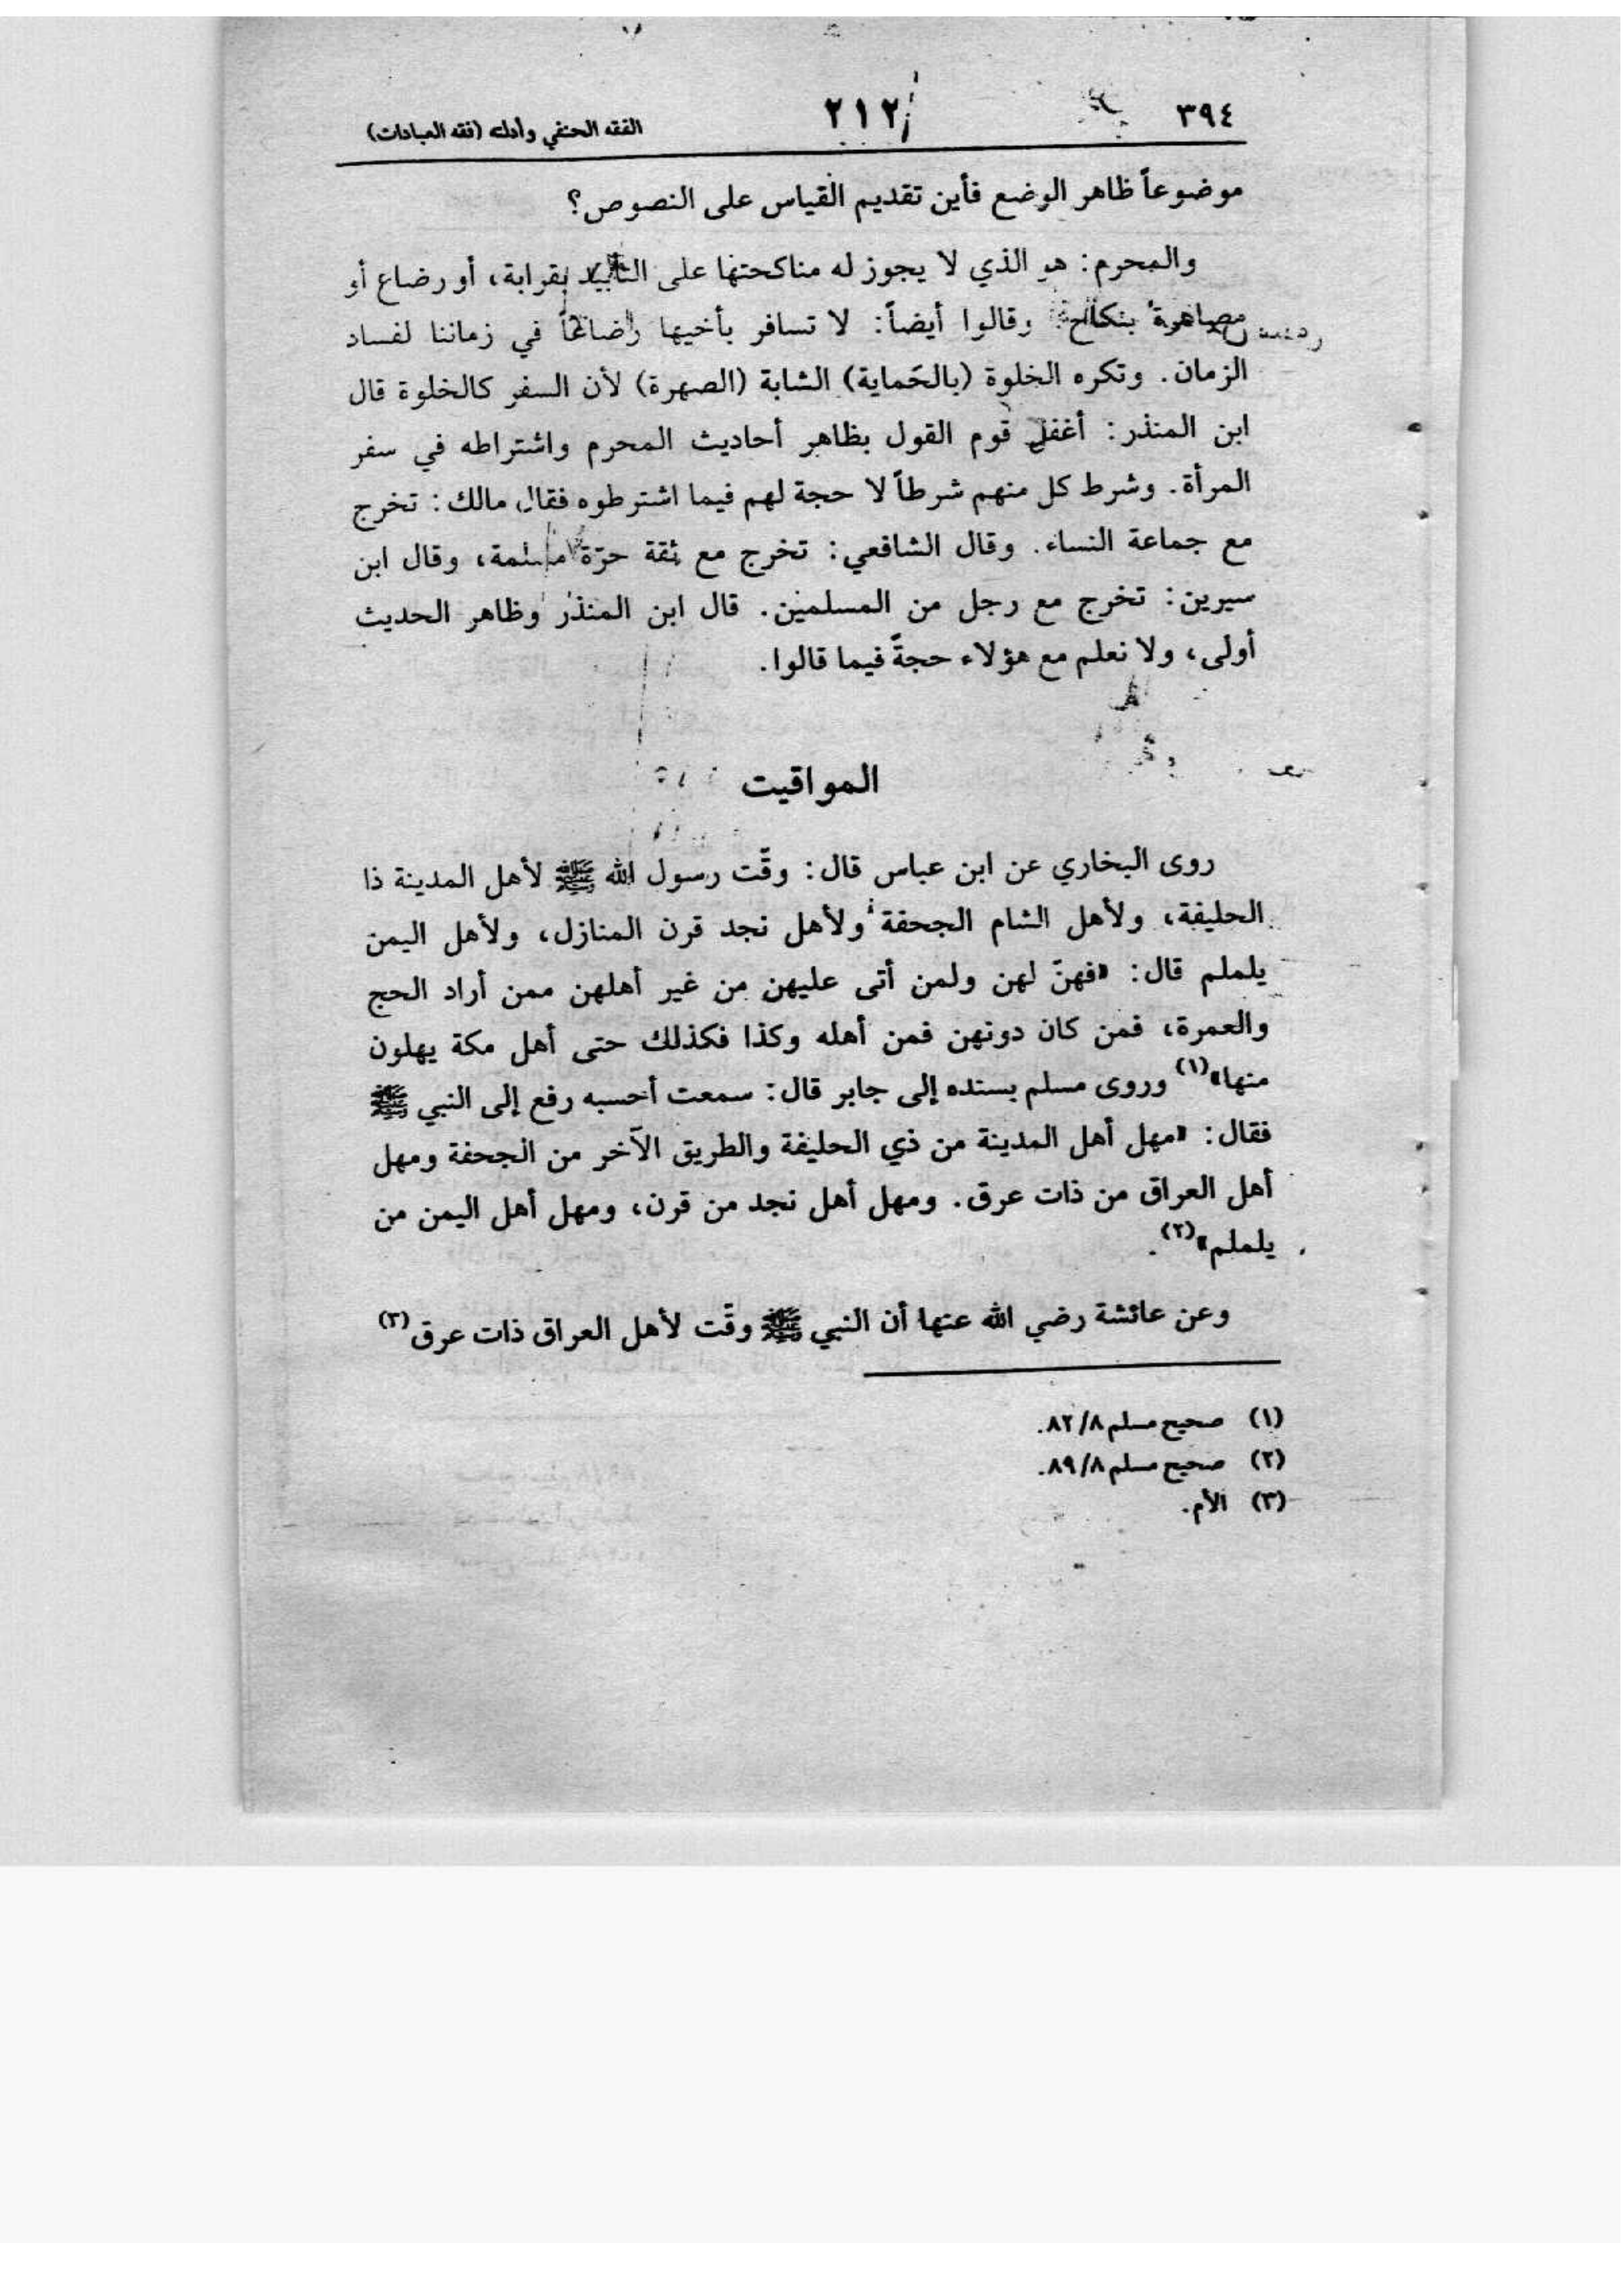 ٣٩٤
٢١٢
الفقه الحنفي وأدلته (فقه العبادات)
موضوعاً ظاهر الوضع فأين تقديم القياس على النصوص؟
والمحرم: هو الذي لا يجوز له مناكحتها على التأبيد بقرابة، أو رضاع أو
مصاهرة بنكاح وقالوا أيضاً: لا تسافر بأخيها رضاعاً في زماننا لفساد
الزمان. وتكره الخلوة (بالحَماية) الشابة (الصهرة) لأن السفر كالخلوة قال
ابن المنذر: أغفل قوم القول بظاهر أحاديث المحرم واشتراطه في سفر
المرأة. وشرط كل منهم شرطاً لا حجة لهم فيما اشترطوه فقال مالك: تخرج
مع جماعة النساء. وقال الشافعي: تخرج مع ثقة حرّة مسلمة، وقال ابن
سيرين: تخرج مع رجل من المسلمين. قال ابن المنذر وظاهر الحديث
أولى، ولا نعلم مع هؤلاء حجةً فيما قالوا.
المواقيت
روى البخاري عن ابن عباس قال: وقّت رسول الله ﷺ لأهل المدينة ذا
الحليفة، ولأهل الشام الجحفة ولأهل نجد قرن المنازل، ولأهل اليمن
يلملم قال: «فهنّ لهن ولمن أتى عليهن من غير أهلهن ممن أراد الحج
والعمرة، فمن كان دونهن فمن أهله وكذا فكذلك حتى أهل مكة يهلون
منها»(١) وروى مسلم بسنده إلى جابر قال: سمعت أحسبه رفع إلى النبي ﷺ
فقال: «مهل أهل المدينة من ذي الحليفة والطريق الآخر من الجحفة ومهل
أهل العراق من ذات عرق. ومهل أهل نجد من قرن، ومهل أهل اليمن من
يلملم»(٢).
وعن عائشة رضي الله عنها أن النبي ﷺ وقّت لأهل العراق ذات عرق(٣)
(١) صحيح مسلم ٨٢/٨.
(٢) صحيح مسلم ٨٩/٨.
(٣) الأم.